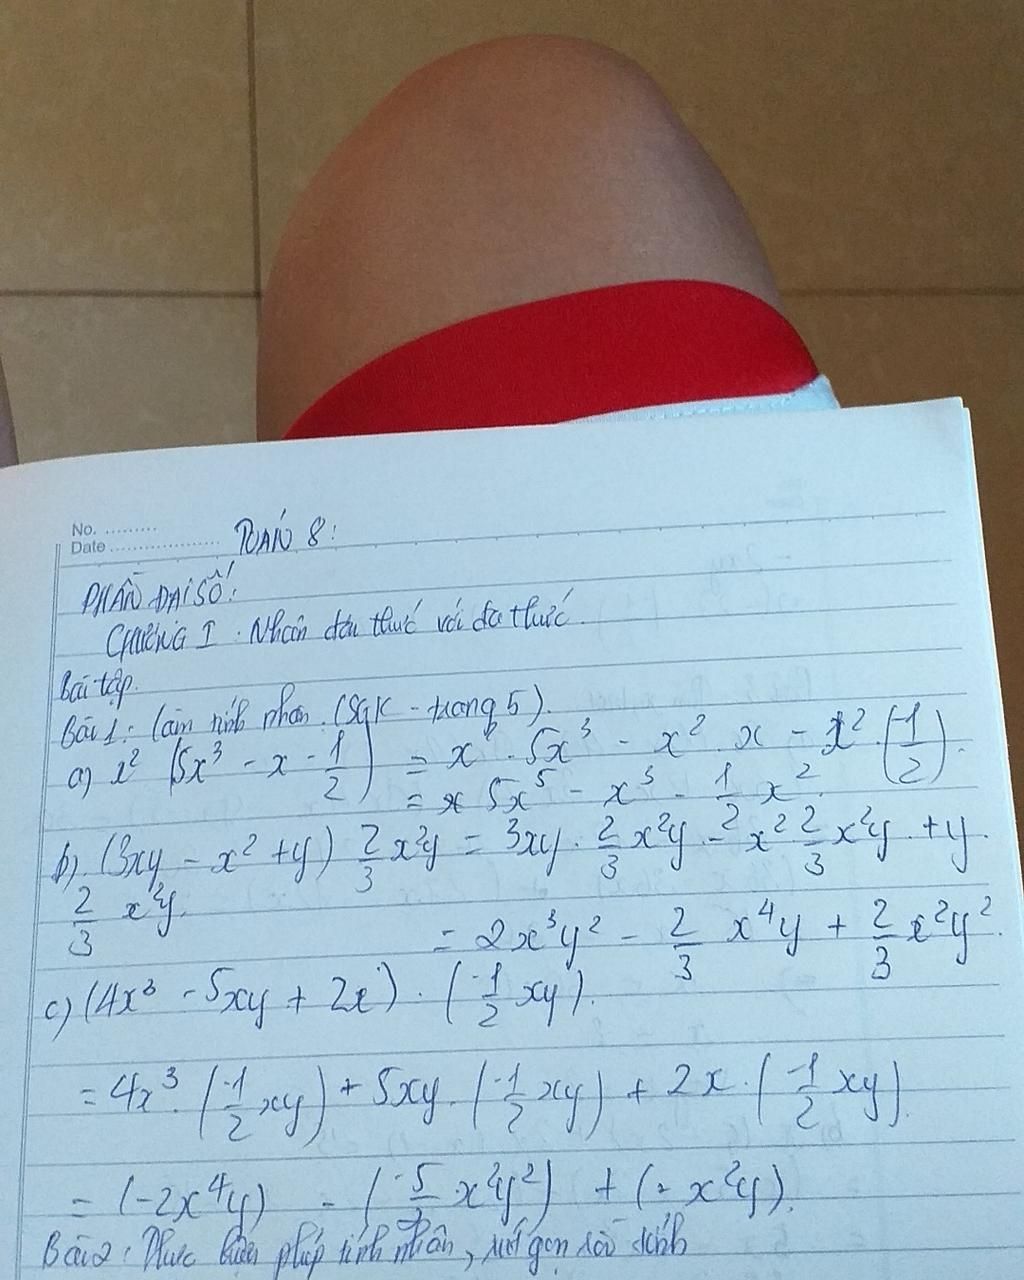 No. .........
Date ................... TOÁN 8:
PHẦN ĐẠI SỐ:
CHƯƠNG I : Nhân đơn thức với đa thức.
Bài tập.
Bài 1: Làm tính nhân. (SGK - trang 5).
a) x² (5x³ - x - 1/2) = x² . 5x³ - x² . x - x² . (1/2).
= 5x⁵ - x³ - 1/2 x².
b). (3xy - x² + y) 2/3 x²y = 3xy . 2/3 x²y - x² 2/3 x²y + y.
2/3 x²y.
= 2x³y² - 2/3 x⁴y + 2/3 x²y².
c) (4x³ - 5xy + 2x) . (-1/2 xy).
= 4x³ . (-1/2 xy) + 5xy . (-1/2 xy) + 2x . (-1/2 xy).
= (-2x⁴y) - (-5/2 x²y²) + (- x²y).
Bài 2: Thực hiện phép tính nhân, rút gọn rồi tính